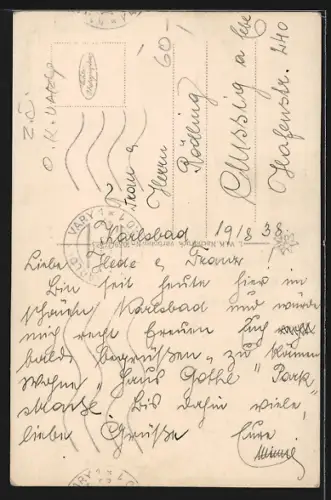 Karlsbad 19/8 38
Liebe Hede & Franz
Bin seit heute hier im
schönen Karlsbad und würde
mich recht freuen Euch recht
bald begrüßen zu können
Wohne „Haus Gothe" Park
straße. Bis dahin viele,
liebe Grüße Eure
Frau &
Herrn
Rödling
Aussig a Elbe
Hafenstr. 240
60
KARLOVY VARY